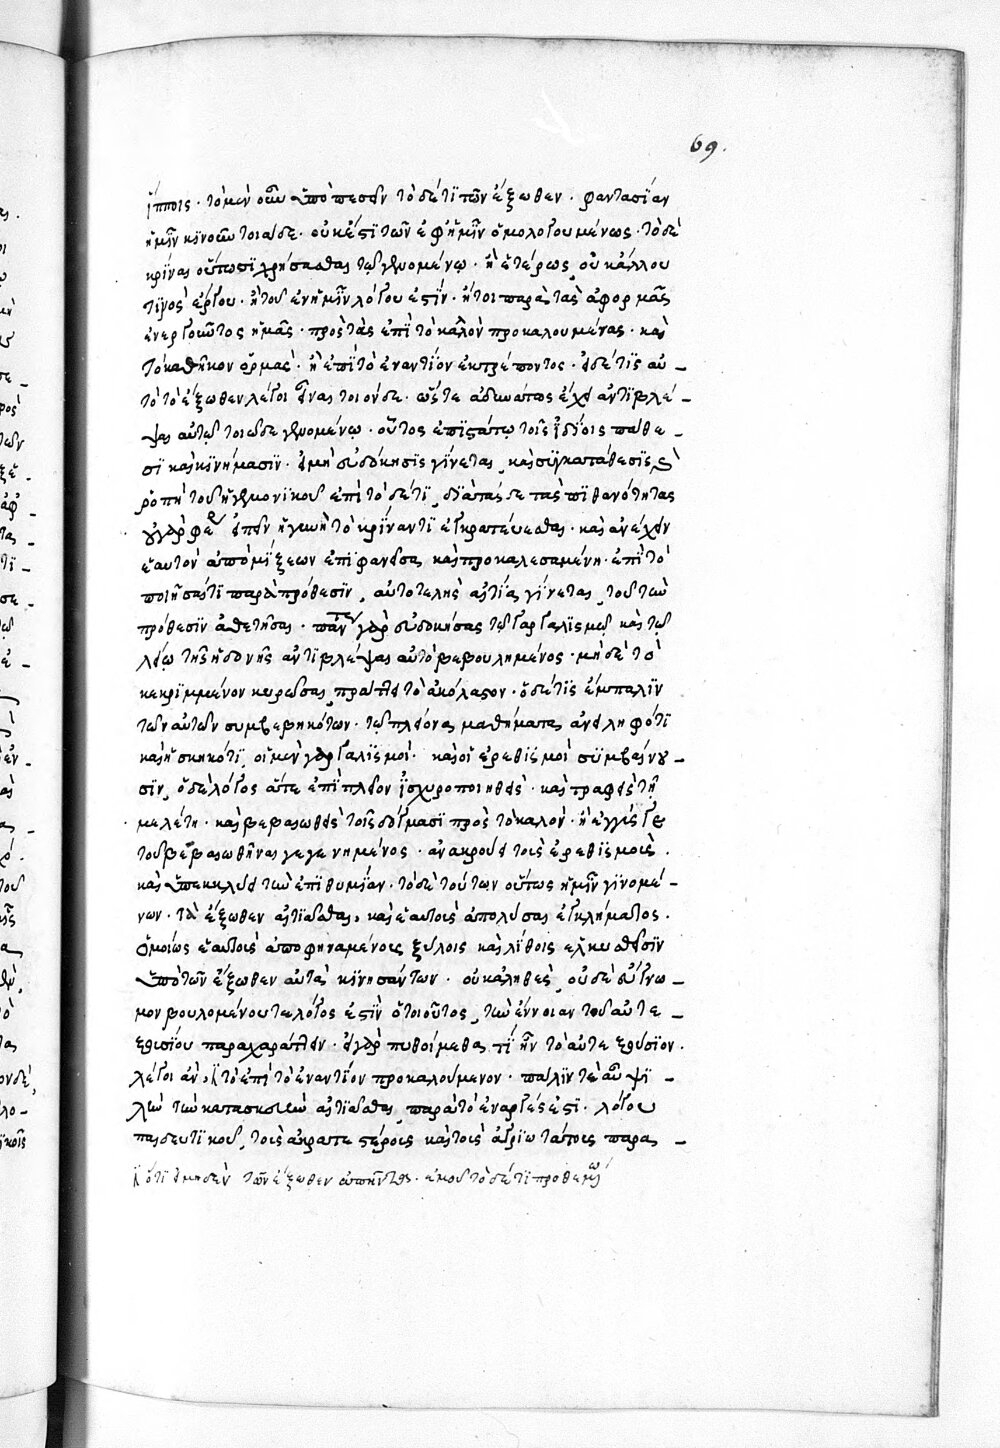 69.
ἵπποις· τὸ μὲν οὖν ὑποπεσεῖν τὸ δέ τι τῶν ἔξωθεν· φαντασίαν
ἡμῖν κινοῦν τοιάδε· οὐκ ἔστι τῶν ἐφ' ἡμῖν ὁμολογουμένως· τὸ δὲ
κρῖναι οὕτωσι χρήσασθαι τῷ γενομένῳ· ἢ ἑτέρως, οὐκ ἄλλου
τινὸς ἔργου· ἢ τοῦ ἐν ἡμῖν λόγου ἐστίν· ἤτοι παρὰ τὰς ἀφορμὰς
ἐνεργοῦντος ἡμᾶς· πρὸς τὰς ἐπὶ τὸ καλὸν προκαλουμένας· καὶ
τὸ καθῆκον ὁρμάς· ἢ ἐπὶ τὸ ἐναντίον ἐκτρέποντος· εἰ δέ τις αὐ–
τὸ τὸ ἔξωθεν λέγοι εἶναι τοιόνδε· ὥστε ἀδυνάτως ἔχει ἀντιβλέ–
ψαι αὐτῷ τοιῷδε γενομένῳ· οὗτος ἐπιστάτω τοῖς ἰδίοις πάθε–
σι καὶ κινήμασιν· εἰ μὴ εὐδόκησις γίνεται, καὶ συγκατάθεσις, καὶ
ῥοπὴ τοῦ ἡγεμονικοῦ ἐπὶ τὸ δέ τι, διὰ τάσδε τὰς πιθανότητας
οὐ γὰρ φερ' εἰπεῖν ἡ γυνὴ τὸ κρίναντι ἐγκρατεύεσθαι· καὶ ἀνέχειν
ἑαυτὸν ἀπὸ μίξεων ἐπιφανεῖσα, καὶ προκαλεσαμένη· ἐπὶ τὸ
ποιῆσαί τι παρὰ πρόθεσιν, αὐτοτελὴς αἰτία γίνεται, τοῦ τὴν
πρόθεσιν ἀθετῆσαι· πάντως γὰρ εὐδοκήσας τῷ γαργαλισμῷ καὶ τῷ
λείῳ τῆς ἡδονῆς ἀντιβλέψαι αὐτὸ βεβουλημένος· μηδὲ τὸ
κεκριμμένον κυρῶσαι, πράττει τὸ ἀκόλαστον· ὁ δέ τις ἔμπαλιν
τῶν αὐτῶν συμβεβηκότων· τῷ πλείονα μαθήματα ἀνειληφότι
καὶ ἠσκηκότι, οἱ μὲν γαργαλισμοὶ· καὶ οἱ ἐρεθισμοὶ συμβαίνου–
σιν, ὁ δὲ λόγος ἅτε ἐπὶ πλεῖον ἰσχυροποιηθεὶς· καὶ τραφεὶς τῇ
μελέτῃ· καὶ βεβαιωθεὶς τοῖς δόγμασι πρὸς τὸ καλὸν· ἢ ἐγγύς γε
τοῦ βεβαιωθῆναι γεγενημένος· ἀνακρούει τοὺς ἐρεθισμοὺς·
καὶ ὑπεκκλύει τὴν ἐπιθυμίαν· τὸ δὲ τούτων οὕτως ἡμῖν γινομέ–
νων· τὰ ἔξωθεν αἰτιᾶσθαι, καὶ ἑαυτοὺς ἀπολῦσαι ἐγκλήματος·
ὁμοίως ἑαυτοὺς ἀποφηναμένους ξύλοις καὶ λίθοις ἑλκυσθεῖσιν
ὑπὸ τῶν ἔξωθεν αὐτὰ κινησάντων· οὐκ ἀληθὲς, οὐδὲ εὔγνω–
μον βουλομένου τε λόγος ἐστὶν ὁ τοιοῦτος, τὴν ἔννοιαν τοῦ αὐτε–
ξουσίου παραχαράττειν· εἰ γὰρ πυθοίμεθα τί ἦν τὸ αὐτεξούσιον·
λέγοι ἂν, τὸ ἐπὶ τὸ ἐναντίον προκαλούμενον· πάλιν τε αὖ ψι–
λὴν τὴν κατασκευὴν αἰτιᾶσθαι, παρὰ τὸ ἐναργές ἐστι· λόγου
παιδευτικοῦ, τοὺς ἀκρατεστέρους καὶ τοὺς ἀγριωτάτους παρα–
ὅτι εἰ μηδὲν τῶν ἔξωθεν ἀπήντησεν· ἐμοῦ τὸ δέ τι προθεμένου